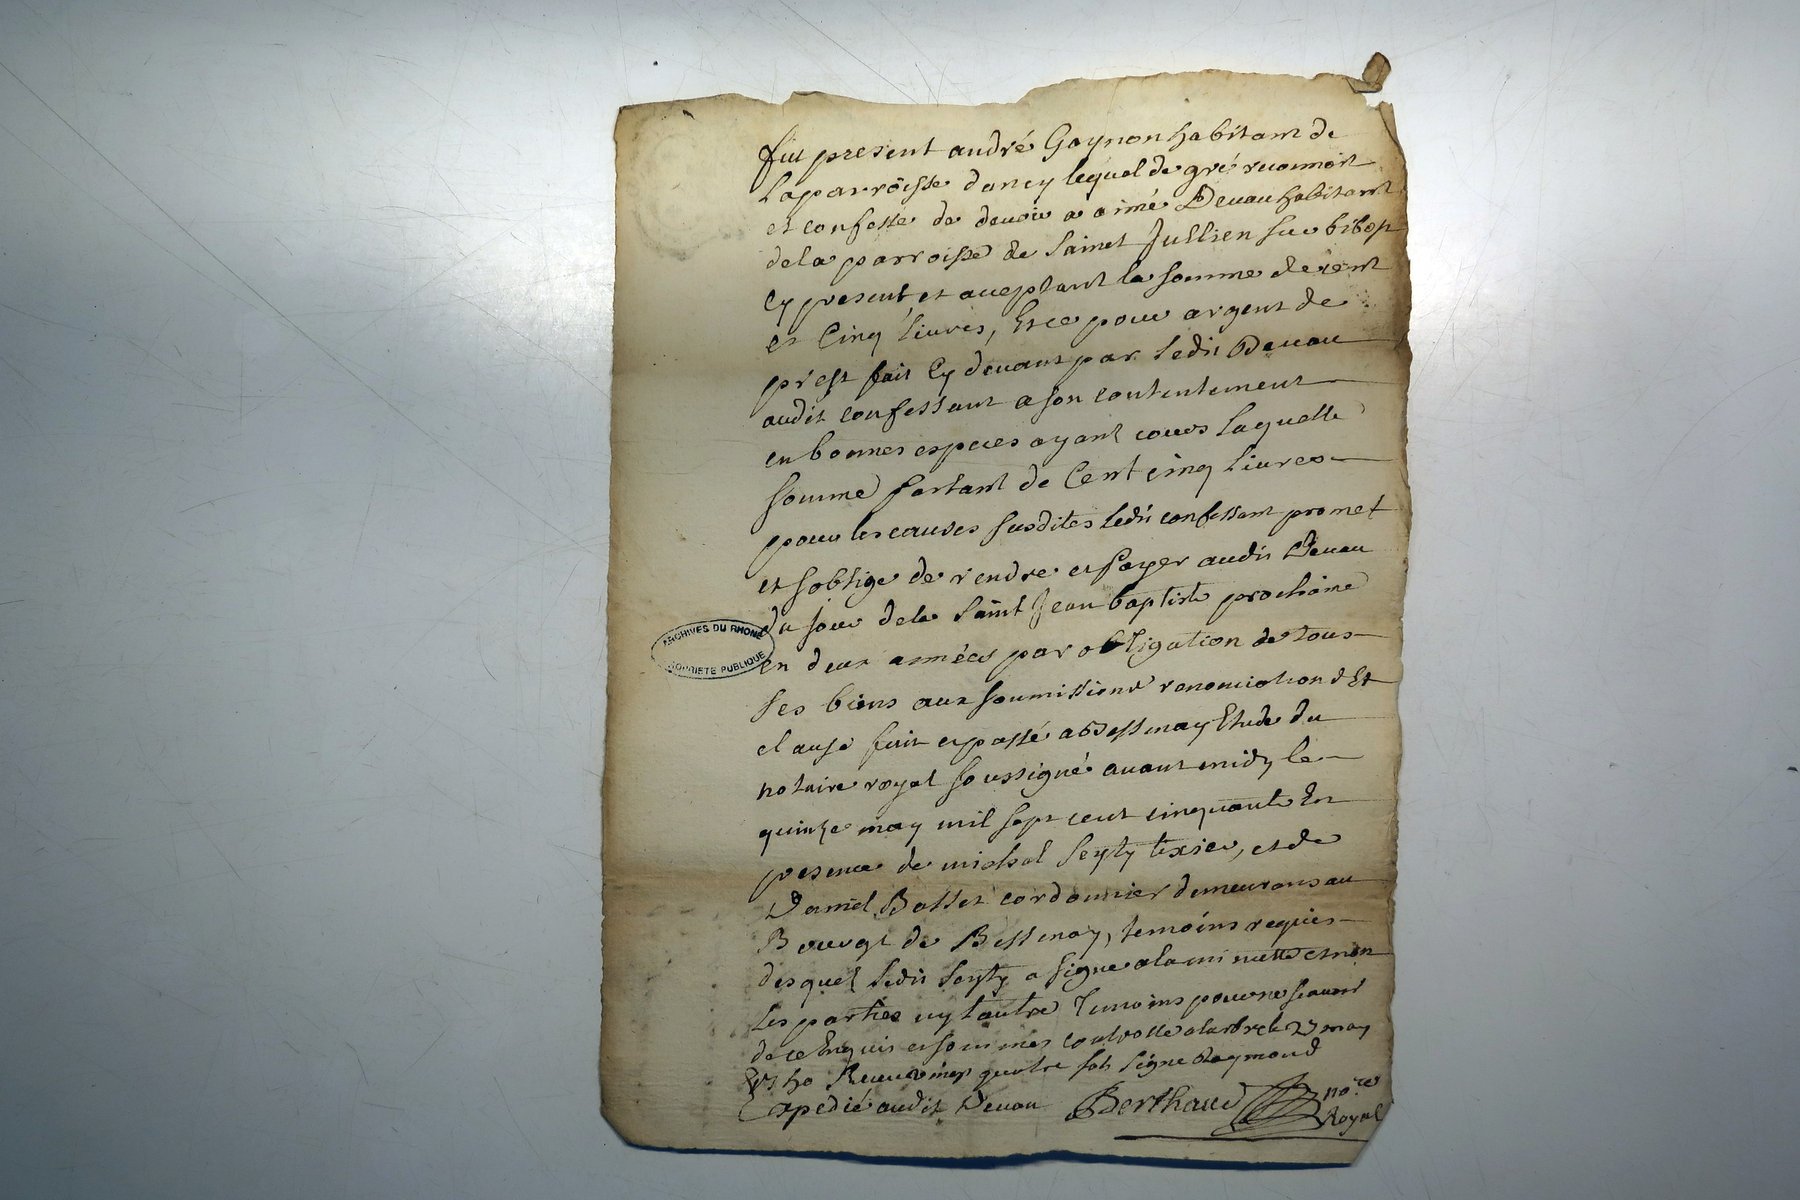 fut present andré Gaynon habitant de
la parroisse dancy lequel de gré reconnoit
et confesse de devoir a aimé Devau habitant
de la parroisse de Saint Jullien sur bibot
Cy present et aceptant la somme de cent
et Cinq livres, Et ce pour argent de
prest fait Cy devant par ledit Devau
audit confessant a son contentement
en bonnes especes ayant cours laquelle
somme partant de Cent cinq livres
pour les causes susdites ledit confessant promet
et soblige de rendre et payer audit Devau
du jour dela Saint Jean baptiste prochaine
en deux années par obligation de tous
ses biens aux soumissions renonciations Et
clause fait et passé a Bessenay Etude du
notaire royal soussigné avant midy le
quinze may mil sept cent cinquante En
presence de michel Seyty texier, et de
Daniel Basset cordonnier demeurans au
Bourgt de Bessenay, temoins requis
desquel ledit Seyty a signe a la minutte et non
les parties ny lautre Temoins pour ne scavoir
de ce Enquis et sommes controlle a larbrele 23 may
1750 Receu quatre sols Signe Raymond
Expedié audit Devau Berthaud no.re
Royal
ARCHIVES DU RHONE
PROPRIETE PUBLIQUE